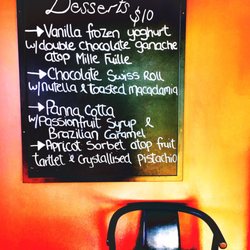 Desserts
$10
→Vanilla frozen yoghurt
w/double chocolate ganache
atop Mille Fuille
→Chocolate Swiss Roll
w/Nutella & Toasted Macadamia
→Panna Cotta
w/Passionfruit Syrup &
Brazilian Caramel
→Apricot Sorbet atop fruit
tartlet & Crystallised Pistachio